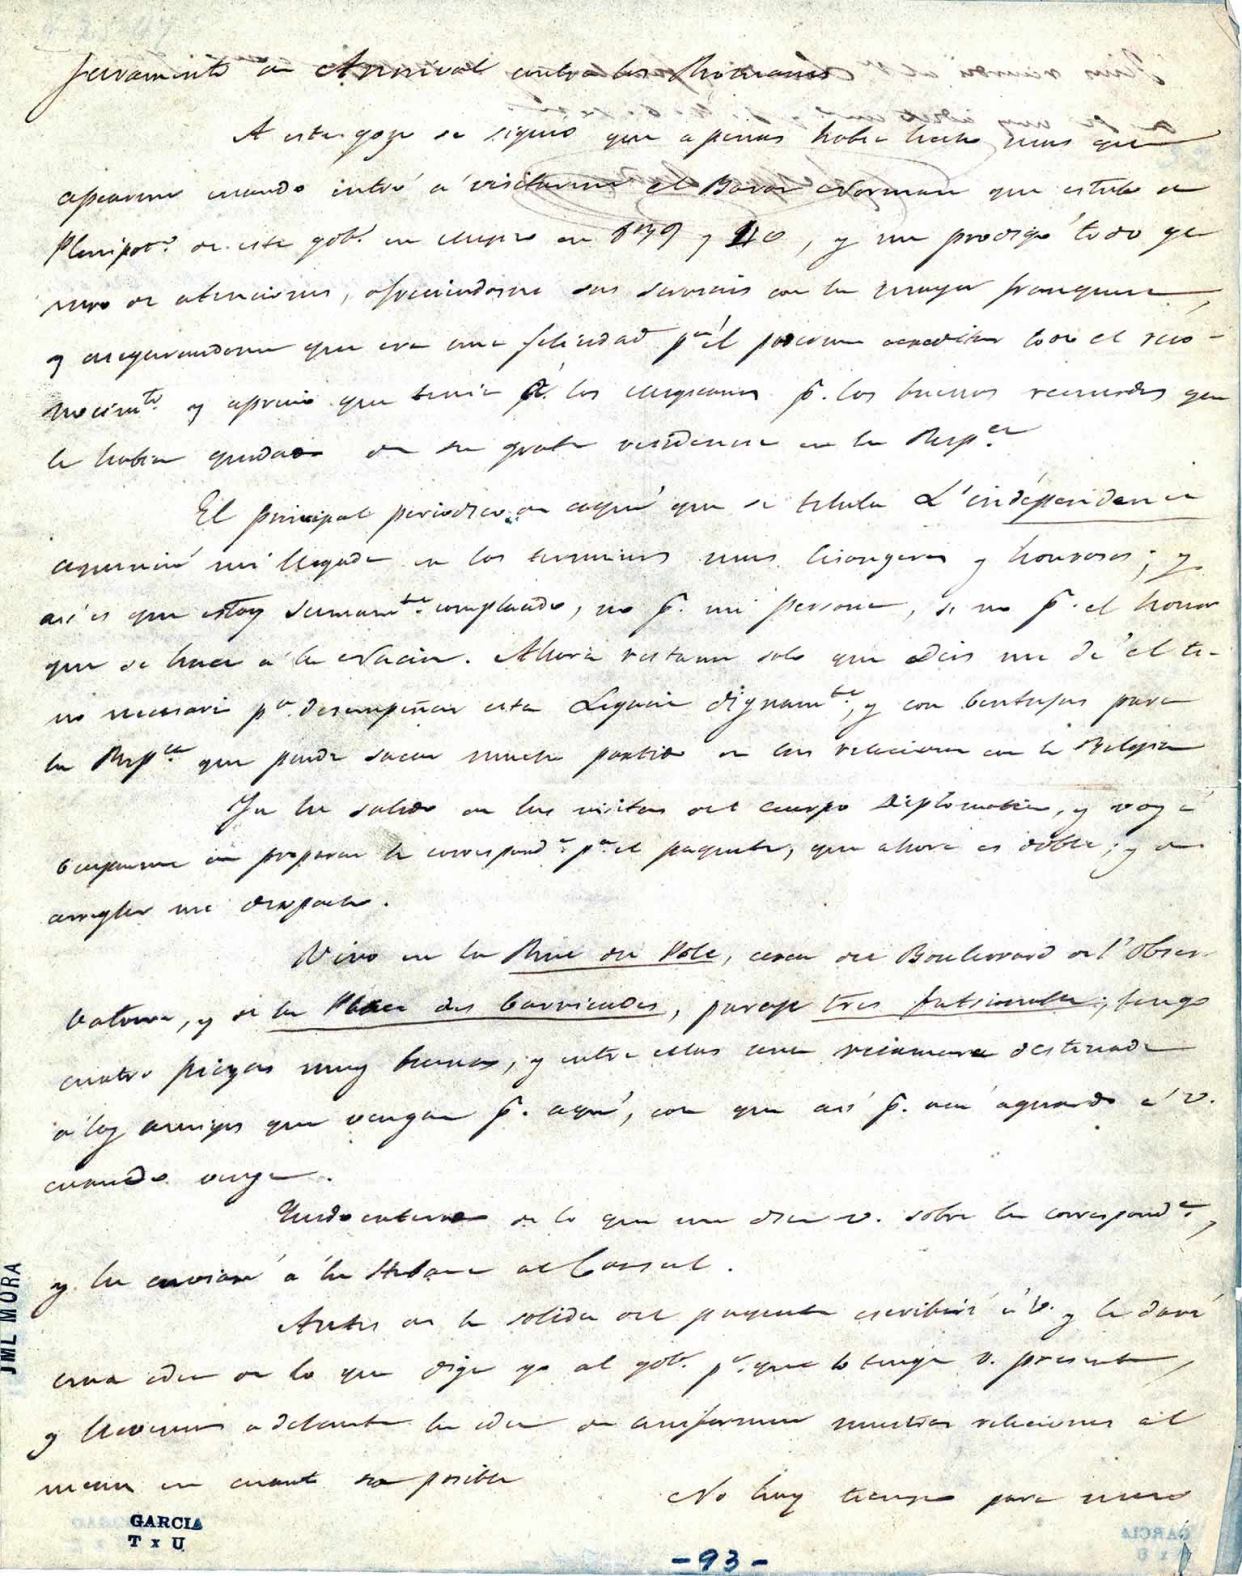 juramento de Annival contra los Romanos
A este gozo se siguió que apenas habia hecho mas que
apearme cuando entró á visitarme el Baron Norman que estubo de
Plenipot.º de este gob.º en Mejico en 1839 y 40, y me prodigó todo ge
nero de atenciones, ofreciendome sus servicios con la mayor franqueza,
y asegurandome que era una felicidad p.ª él poderme acreditar todo el reco-
nocim.to y aprecio que tenia á los Mejicanos p.r los buenos recuerdos que
le habian quedado de su grata residencia en la Rep.ca
El principal periodico de aqui que se titula L'indépendance
anunció mi llegada en los terminos mas lisongeros y honrosos; y
asi es que estoy sumam.te complacido, no p.r mi persona, si no p.r el honor
que se hace á la Nacion. Ahora restame solo que Dios me dé el ti-
no necesario p.a desempeñar esta Legacion dignam.te, y con bentajas para
la Rep.ca que puede sacar mucho partido de las relaciones con la Belgica
Ya he salido de las visitas del cuerpo Diplomatico, y voy á
ocuparme en preparar la correspond.a p.a el paquete, que ahora es doble, y en
arreglar mi despacho.
Vivo en la Rue de , cerca del Boulevard de l'Obser-
vatoire, y de la Place des barricades, parage tres fatsionable; tengo
cuatro piezas muy buenas, y entre ellas una recamara destinada
á los amigos que vengan p.r aquí, con que así p.r acá aguardo á V.
cuando venga.
Quedo enterado de lo que me dice V. sobre la correspond.a,
y la enviaré á la Habana al Consul.
Antes de la salida del paquete escribiré á V. y le daré
una idea de lo que diga yo al gob.º p.a que lo tenga V. presente,
y llevemos adelante la idea de uniformar nuestras relaciones al
menos en cuanto sea posible
No hay tiempo para mas
JML MORA
GARCIA
T x U
-93-